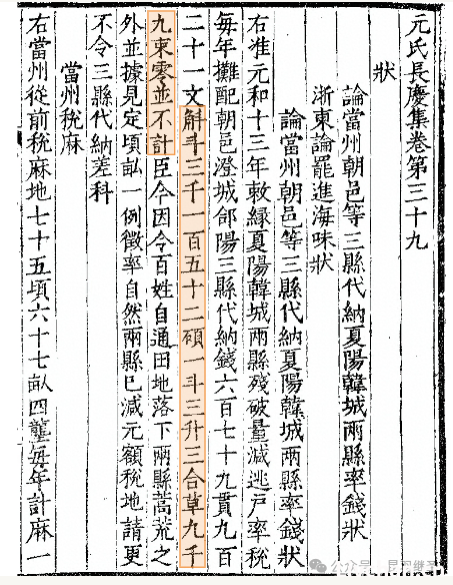 元氏長慶集卷第三十九
狀
論當州朝邑等三縣代納夏陽韓城兩縣率錢狀
浙東論罷進海味狀
論當州朝邑等三縣代納夏陽韓城兩縣率錢狀
右准元和十三年敕緣夏陽韓城兩縣殘破量減逃戶率稅
每年攤配朝邑澄城郃陽三縣代納錢六百七十九貫九百
二十一文斛斗三千一百五十二碩一斗三升三合草九千
九束零並不計臣今因令百姓自通田地落下兩縣蒿荒之
外並據見定頃畝一例徵率自然兩縣已減元額稅地請更
不令三縣代納差科
當州稅麻
右當州從前稅麻地七十五頃六十七畝四壠每年計麻一
公众号